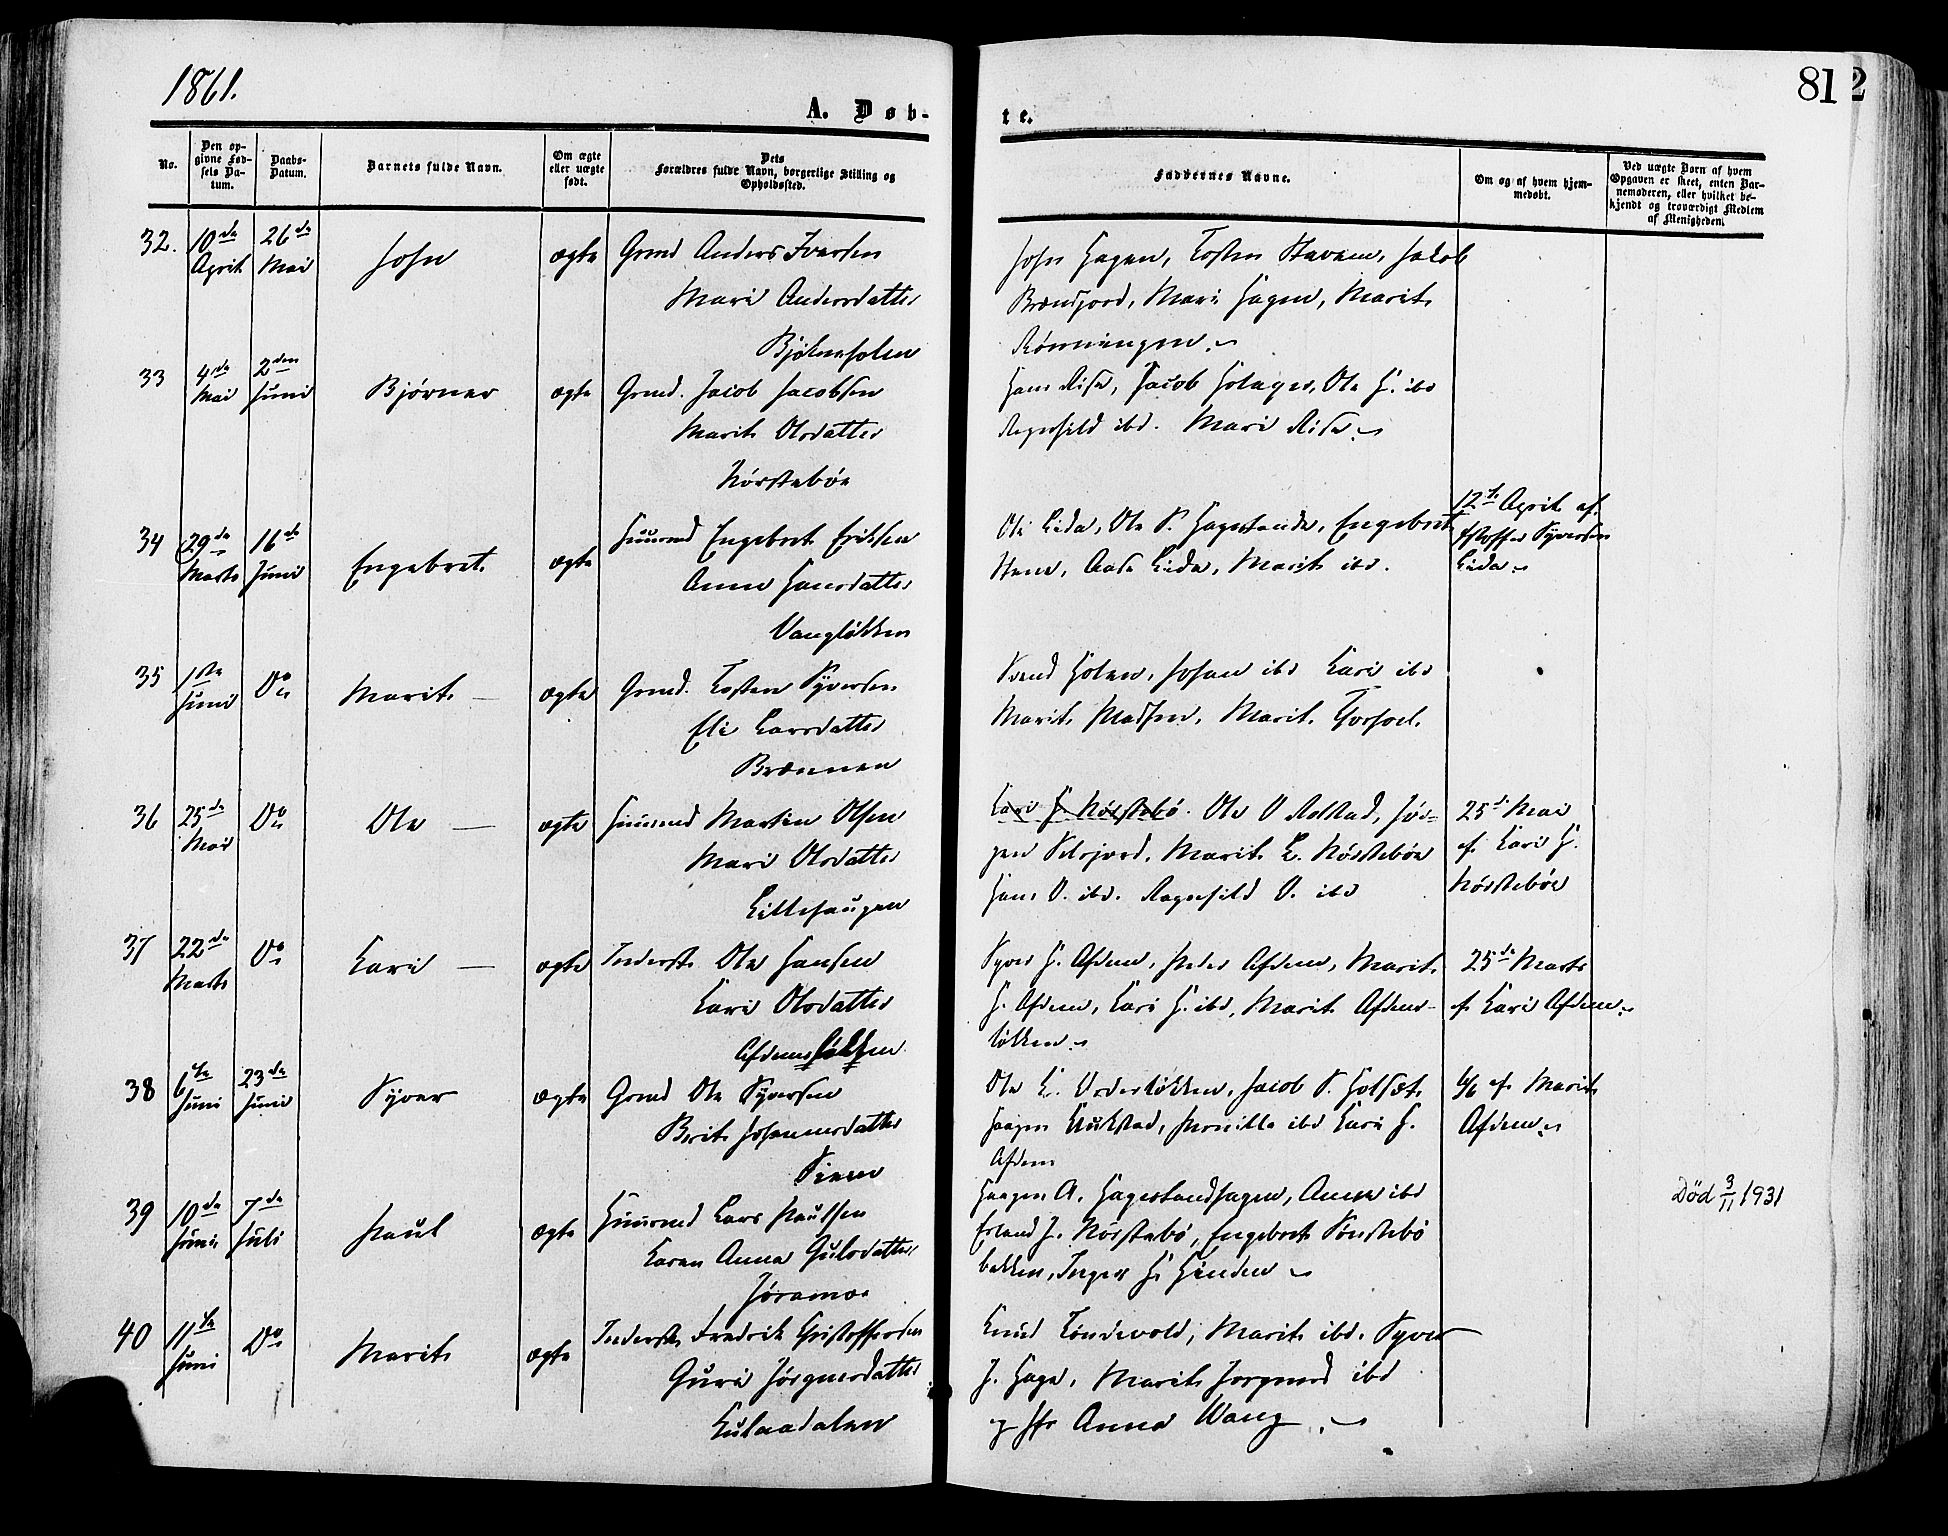 1861.
812
A. Døb-
te.
No.
Den op-
givne Fød-
sels Da-
tum.
Daabs-
Datum.
Barnets fulde Navn.
Om ægte
eller uægte
født.
Dets
Forældres fulde Navn, borgerlige Stilling og
Opholdssted.
Faddernes Navne.
Om og af hvem hjem-
medøbt.
Ved uægte Børn af hvem
Opgaven er skeet, enten Bar-
nemoderen, eller hvilket be-
kjendt og troværdigt Medlem
af Menigheden.
32. 10de April 26de Mai John ægte Grmd Anders Iversen
Mari Andersdatter
Bjølverholen
John Hagen, Tosten Stavem, Jakob
Brændjord, Mari Hagen, Marit
Rönningen
33 4de Mai 2den Juni Bjørner ægte Grmd. Jacob Jacobsen
Marit Olsdatter
Nörsteböe
Hans Risa, Jacob Holager, Ole H. ibd
Ragnhild ibd. Mari Risa
34 29de Marts 16de Juni Engebret ægte Huusmd Engebret Eriksen
Anne Hansdatter
Vanglökken
Ole Lida, Ole S. Hagestande, Engebret
Stene, Aase Lida, Marit ibd.
12te April af
Christoffer Syversen
Lida
35 1ste Juni Do Marit ægte Grmd. Tosten Syversen
Eli Larsdatter
Brænnen
Svend Holen, Johan ibd Kari ibd
Marit Madsen, Marit
36 25de Mai Do Ole ægte Huusmd Martin Olsen
Mari Olsdatter
Lillehaugen
Kari H Nörstebö. Ole O Rolstad, Jör-
gen Selsjord, Marit L. Nörsteböe
Hans O. ibd. Ragnhild O. ibd
25de Mai
af Kari H.
Nörsteböe
37 22de Marts Do Kari ægte Inderst Ole Hansen
Kari Olsdatter
Afdemslökken
Syver H. Afdem, Peder Afdem, Marit
H. Afdem, Kari H. ibd, Marit Afdems-
lökken
25de Marts
af Kari Afdem
38 6te Juni 23de Juni Syver ægte Grmd Ole Syversen
Berit Johannesdatter
Siem
Ole L. Urderlökken, Jacob S. Holset,
Haagen Klukstad, Pernille ibd Kari H.
Afdem
6/6 af Marit
Afdem
39 10de Juni 7de Juli Paul ægte Huusmd Lars Paulsen
Karen Anna Gulsdatter
Jöramoe
Haagen A. Hagestandhagen, Anne ibd
Erland J. Nörstebö, Engebret Sönstebö
bakken, Inger H
Død 3/11 1931
40 11te Juni Do Marit ægte Inderst Fredrik Christoffersen
Guri Jörgensdatter
Kulaadalen
Knud Töndevold, Marit ibd. Syver
J. Hage, Marit Jorgensd ibd
og Jfr Anna Wang